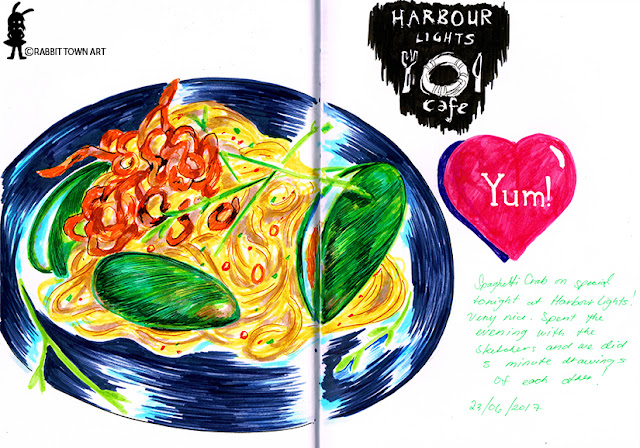 ©RABBIT TOWN ART
HARBOUR
LIGHTS
cafe
Yum!
Spaghetti Crab on special
tonight at Harbour Lights!
Very nice. Spent the
evening with the
sketchers and we did
5 minute drawings
of each other.
23/06/2017